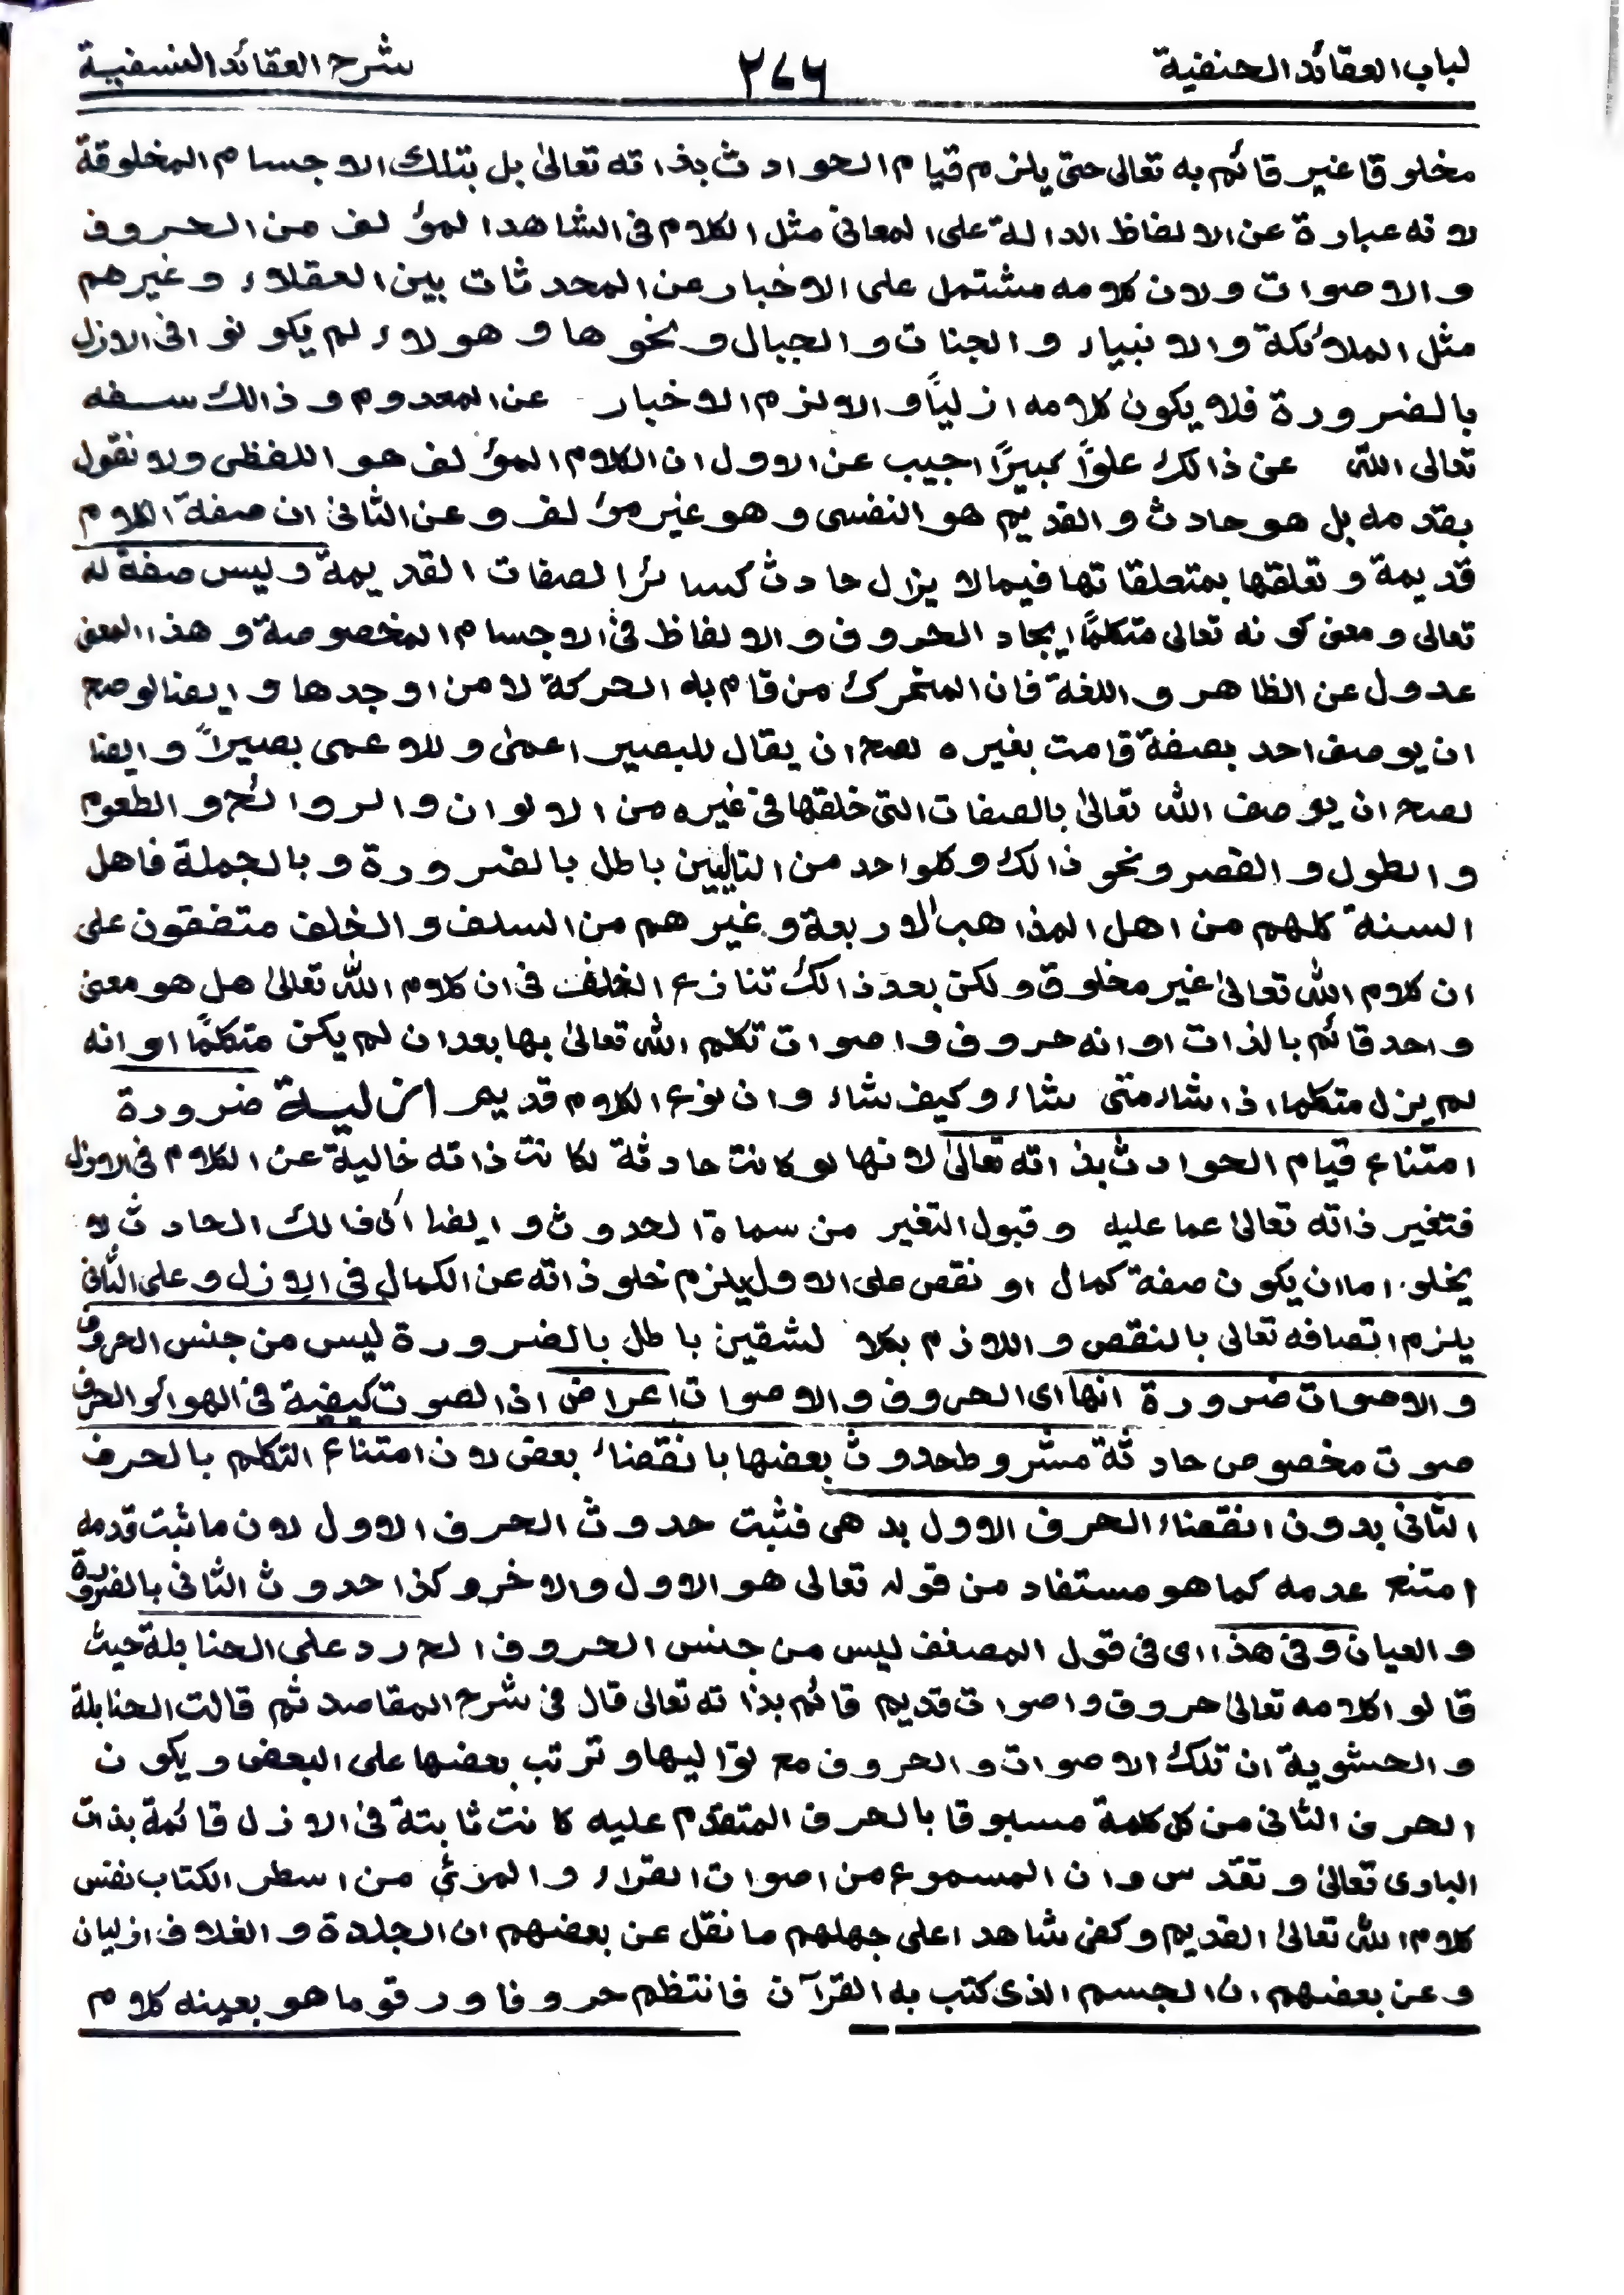 لباب العقائد الحنفية ٢٧٦ شرح العقائد النسفية
مخلوقا غير قائم به تعالى حتى يلزم قيام الحوادث بذاته تعالىٰ بل بتلك الاجسام المخلوقة
لانه عبارة عن الالفاظ الدالة على المعانى مثل الكلام فى الشاهد المؤلف من الحروف
والاصوات ولان كلامه مشتمل على الاخبار عن المحدثات بين العقلاء وغيرهم
مثل الملائكة والانبياء والجنات والجبال ونحوها وهولاء لم يكونوا فى الازل
بالضرورة فلا يكون كلامه ازلياً والا لزم الاخبار عن المعدوم وذالك سفه
تعالى الله عن ذالك علواً كبيرًا اجيب عن الاول ان الكلام المؤلف هو اللفظى ولا نقول
بقدمه بل هو حادث والقديم هو النفسى وهو غير مؤلف وعن الثانى ان صفة الكلام
قديمة وتعلقها بمتعلقاتها فيما لا يزال حادث كسائر الصفات القديمة وليس صفة له
تعالى ومعنى كونه تعالى متكلمًا ايجاد الحروف والالفاظ فى الاجسام المخصوصة وهذا المعنى
عدول عن الظاهر واللغة فان المتحرك من قام به الحركة لا من اوجدها وايضا لو صح
ان يوصف احد بصفة قامت بغيره لصح ان يقال للبصير اعمىٰ وللاعمى بصيراً وايضا
لصح ان يوصف الله تعالىٰ بالصفات التى خلقها فى غيره من الالوان والروائح والطعوم
والطول والقصر ونحو ذالك وكلواحد من التاليين باطل بالضرورة وبالجملة فاهل
السنة كلهم من اهل المذاهب الاربعة وغيرهم من السلف والخلف متفقون على
ان كلام الله تعالىٰ غير مخلوق ولكن بعد ذالك تنازع الخلف فى ان كلام الله تعالىٰ هل هو معنى
واحد قائم بالذات او انه حروف واصوات تكلم الله تعالىٰ بها بعد ان لم يكن متكلمًا او انه
لم يزل متكلما اذا شاء متى شاء وكيف شاء وان نوع الكلام قديم ازلية ضرورة
امتناع قيام الحوادث بذاته تعالىٰ لانها لو كانت حادثة لكانت ذاته خالية عن الكلام فى الازل
فتغير ذاته تعالىٰ عما عليه وقبول التغير من سماة الحدوث وايضا ذالك الحادث لا
يخلو اما ان يكون صفة كمال او نقص على الاول يلزم خلو ذاته عن الكمال فى الازل وعلى الثانى
يلزم اتصافه تعالى بالنقص واللازم بكلا لشقين باطل بالضرورة ليس من جنس الحروف
والاصوات ضرورة انها اى الحروف والاصوات اعراض اذ الصوت كيفية فى الهواء والحرف
صوت مخصوص حادثة مشروط حدوث بعضها بانقضاء بعض لان امتناع التكلم بالحرف
الثانى بدون انقضاء الحرف الاول بدهى فثبت حدوث الحرف الاول لان ما ثبت قدمه
امتنع عدمه كما هو مستفاد من قوله تعالى هو الاول والاخر وكذا حدوث الثانى بالضرورة
والعيان وفى هذا اى فى قول المصنف ليس من جنس الحروف الخ رد على الحنابلة حيث
قالوا كلامه تعالىٰ حروف واصوات قديم قائم بذاته تعالى قال فى شرح المقاصد ثم قالت الحنابلة
والحشوية ان تلك الاصوات والحروف مع تواليها وترتب بعضها على البعض ويكون
الحرف الثانى من كل كلمة مسبوقا بالحرف المتقدم عليه كانت ثابتة فى الازل قائمة بذات
البارى تعالىٰ وتقدس وان المسموع من اصوات القراء والمرئى من اسطر الكتاب نفس
كلام الله تعالىٰ القديم وكفى شاهدا على جهلهم ما نقل عن بعضهم ان الجلدة والغلاف ازليان
وعن بعضهم ان الجسم الذى كتب به القرآن فانتظم حروفا ورقوما هو بعينه كلام